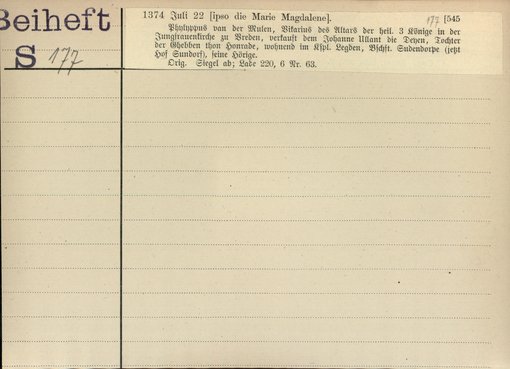 Beiheft
S 177
1374 Juli 22 [ipso die Marie Magdalene]. 177 [545
Phylyppus van der Mulen, Vikarius des Altars der heil. 3 Könige in der
Jungfrauenkirche zu Vreden, verkauft dem Johanne Ullant die Deyen, Tochter
der Ghebben thon Honrade, wohnend im Kspl. Legden, Bschft. Sudendorpe (jetzt
Hof Sundorf), seine Hörige.
Orig. Siegel ab; Lade 220, 6 Nr. 63.